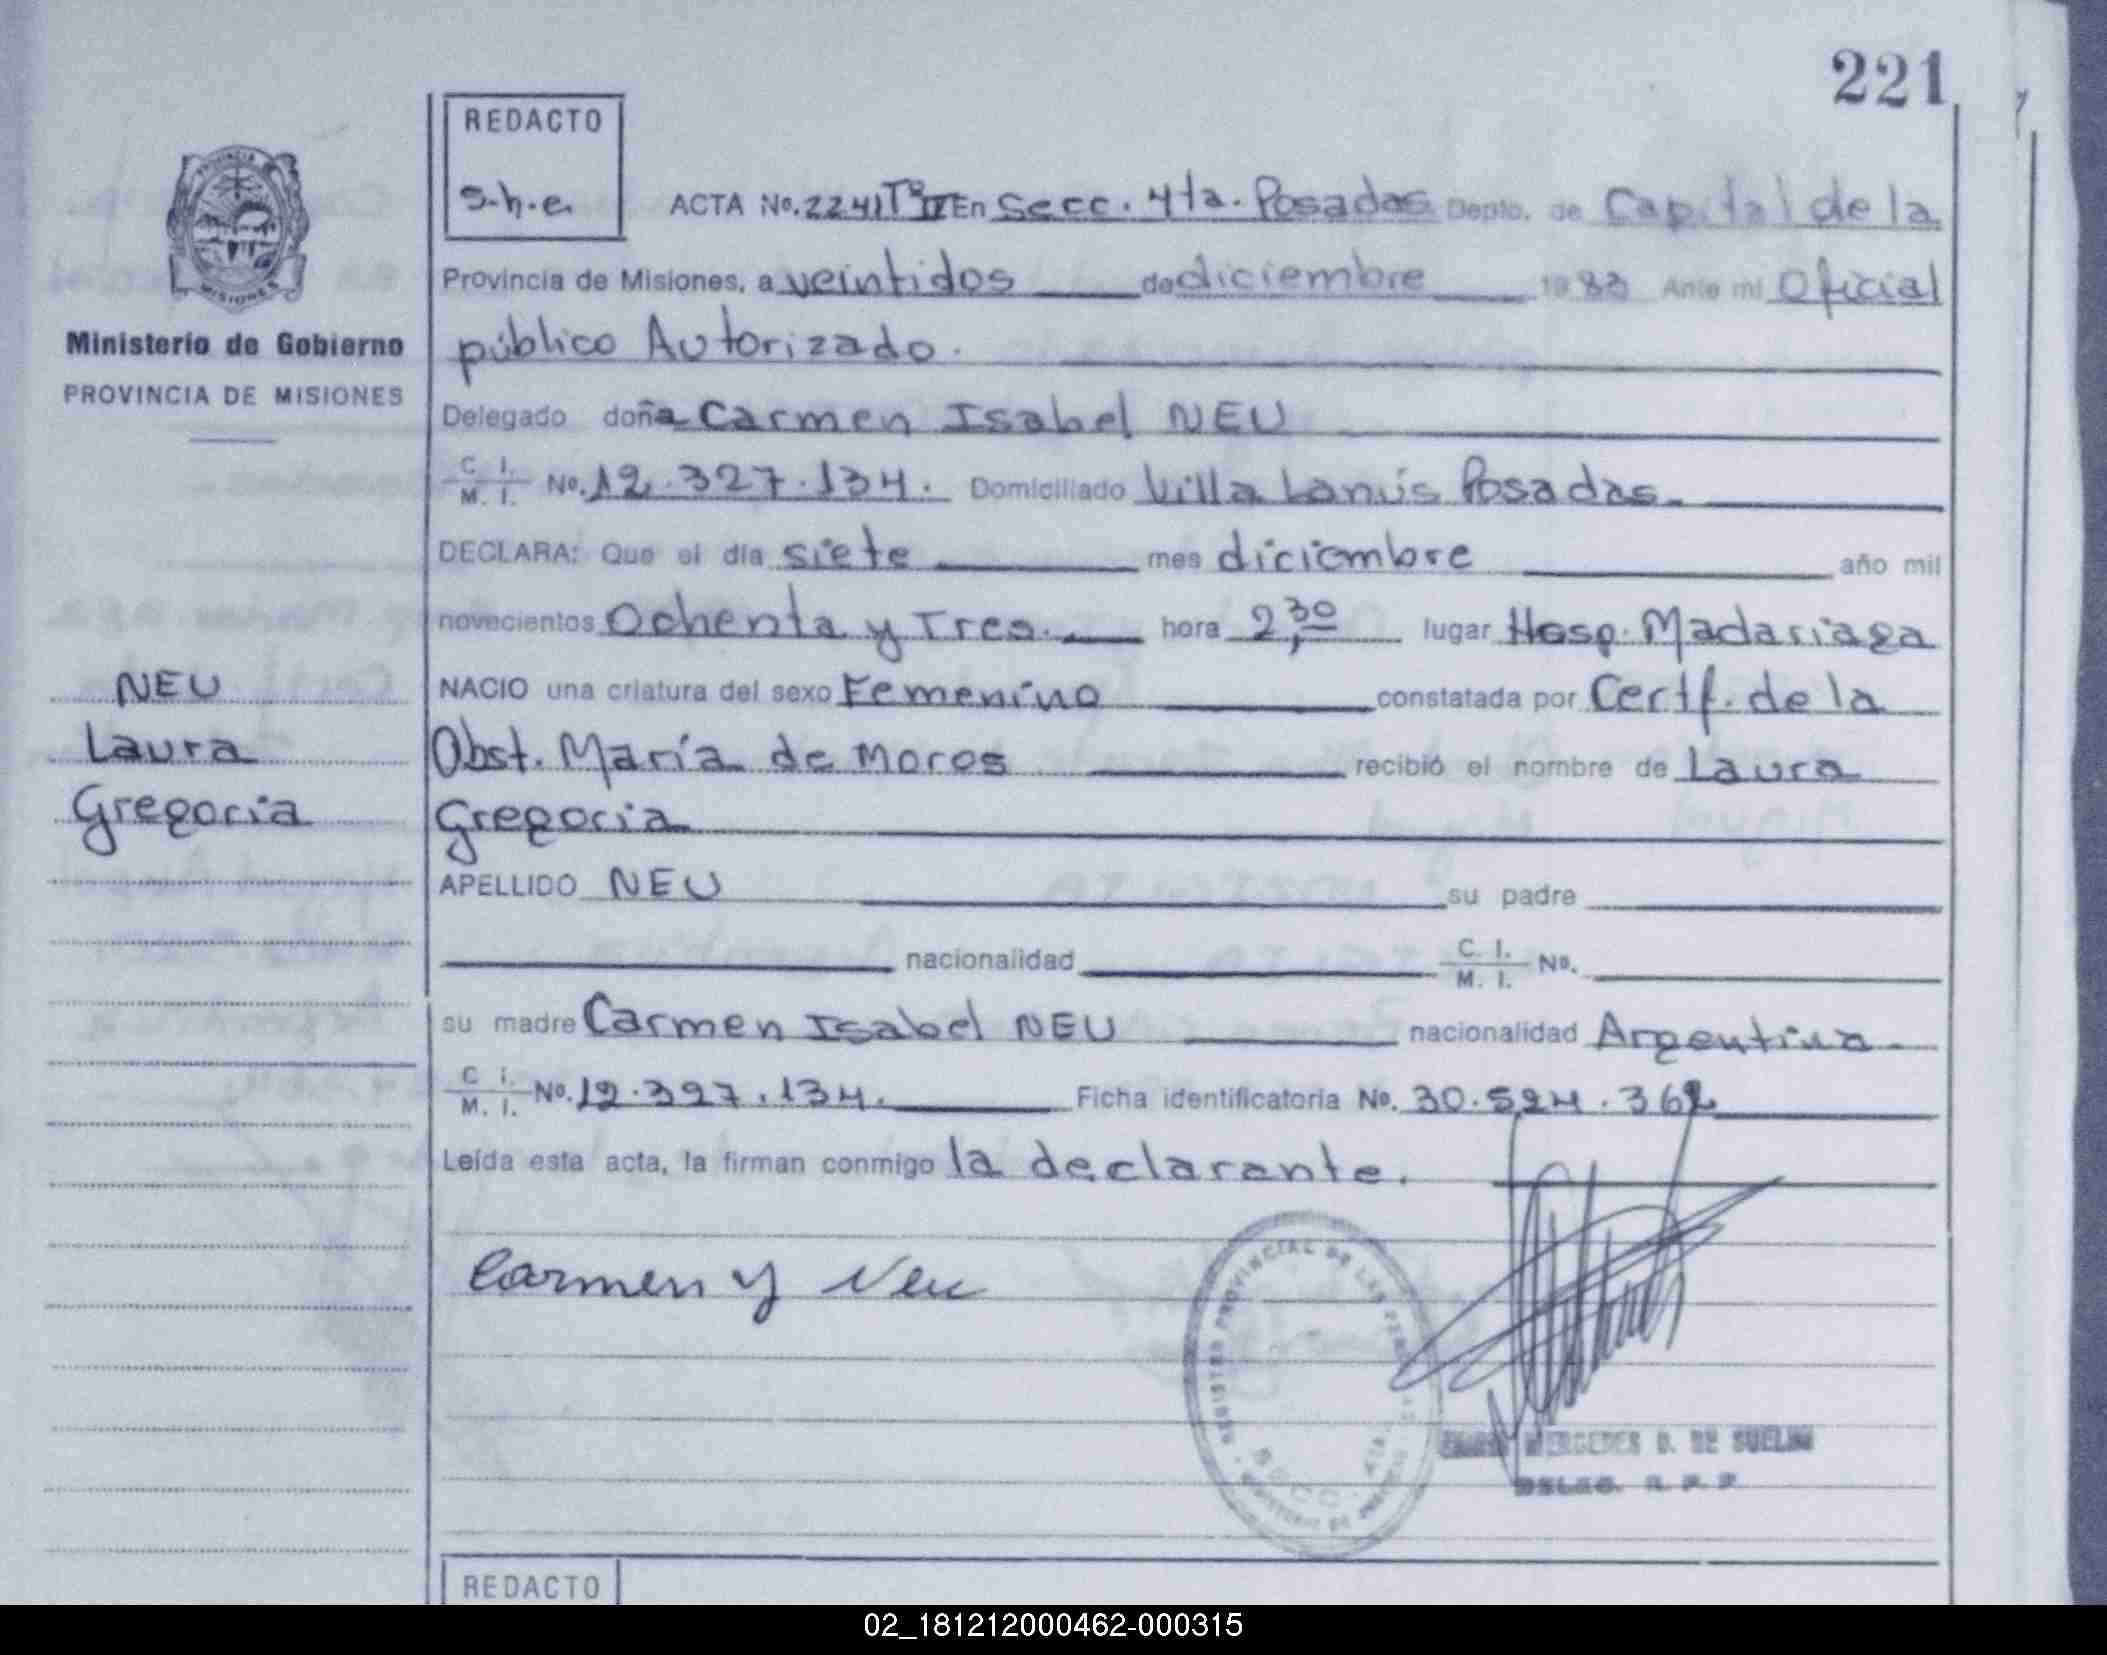 221
REDACTO
s.h.e.
ACTA No. 2241 Tº II En Secc. 4ta. Posadas Depto. de Capital de la
Provincia de Misiones, a veintidos de diciembre 1983 Ante mi Oficial
público Autorizado.
Delegado doña Carmen Isabel NEU
C. I. / M. I. No. 12.327.134. Domiciliado Villa Lanús Posadas.
DECLARA: Que el día siete mes diciembre año mil
novecientos Ochenta y Tres. hora 2,30 lugar Hosp. Madariaga
NACIO una criatura del sexo Femenino constatada por Certf. de la
Obst. María de Moros recibió el nombre de Laura
Gregoria
APELLIDO NEU su padre
nacionalidad C. I. / M. I. No.
su madre Carmen Isabel NEU nacionalidad Argentina.
C. I. / M. I. No. 12.327.134. Ficha identificatoria No. 30.524.362
Leída esta acta, la firman conmigo la declarante.
Carmen y Neu
REGISTRO PROVINCIAL DE LAS
SECC. 4TA.
MERCEDES D. DE
DELEG. R. P. P.
REDACTO
PROVINCIA DE
MISIONES
Ministerio de Gobierno
PROVINCIA DE MISIONES
NEU
Laura
Gregoria
02_181212000462-000315